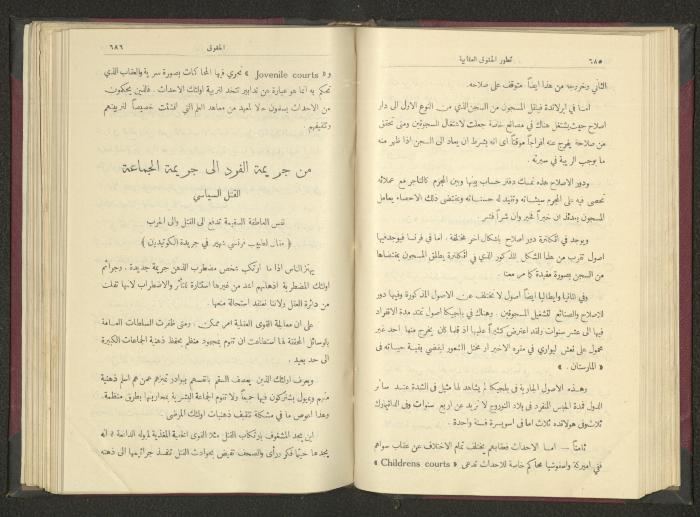 ٦٨٥ تطور الحقوق العقابية
الثاني وخروجه من هذا ايضاً متوقف على صلاحه .
اما في ايرلاندة فينقل المسجون من السجن الذي من النوع الاول الى دار
اصلاح حيث يشتغل هناك في مصانع خاصة جعلت لاشتغال المسجونين ومتى تحقق
من صلاحه يفرج عنه افراجاً موقتاً اى انه بشرط ان يعاد الى السجن اذا ظهر منه
ما يوجب الريبة في سيرته .
ودور الاصلاح هذه تمسك دفتر حساب بينها وبين المجرم كالتاجر مع عملائه
تحصى فيه على المجرم سيئاته وتقيد له حسناته وبمقتضى ذلك الاحصاء يعامل
المسجون بعدئذ ان خيراً فخير وان شراً فشر .
ويوجد في انكلترة دور اصلاح باشكال اخر مختلفة . اما في فرنسا فيوجد فيها
اصول تقرب من هذا الشكل المذكور الذي في انكلترة يطلق المسجون بمقتضاها
من السجن بصورة مقيدة كما مر معنا .
وفي المانيا وايطاليا ايضاً اصول لا تختلف عن الاصول المذكورة وفيها دور
للاصلاح والصنائع لتشغيل المسجونين . وهناك في بلجيكا اصول تمتد مدة الانفراد
فيها الى عشر سنوات ولقد اعترض كثيراً عليها اذ قلما كان يخرج منها احد غير
محمول على نعش ليوارى في مقره الاخير او مختل الشعور ليقضي بقية حياته فى
« المارستان . »
وهذه الاصول الجارية فى بلجيكا لم يشاهد لها مثيل فى الشدة عند سائر
الدول فمدة الحبس المنفرد فى بلاد النوروج لا تزيد عن اربع سنوات وفى الدانيمارك
ثلاث وفى هولانده ثلاث اما فى اسويسرة فسنة واحدة .
ثامناً — اما الاحداث فعقابهم يختلف تمام الاختلاف عن عقاب سواهم
ففي اميركة محاكم خاصة للاحداث تدعى « Childrens courts »
الحقوق ٦٨٦
و « Jovenile courts » تجري فيها المحاكمات بصورة سرية والعقاب الذي
تحكم به انما هو عبارة عن تدابير تتخذ لتربية اولئك الاحداث . فالذين يحكمون
من الاحداث يساقون حالا لمعهد من معاهد العلم التي انشئت خصيصاً لتربيتهم
وتثقيفهم
من جريمة الفرد الى جريمة الجماعة
القتل السياسي
نفس العاطفة السقيمة تدفع الى القتل والى الحرب
( مقال لطبيب فرنسي شهير في جريدة الكوتيدين )
يهتز الناس اذا ما ارتكب شخص مضطرب الذهن جريمة جديدة . وجرائم
اولئك المضطربة اذهانهم اشد من غيرها استثارة للتأثر والاضطراب لانها تفلت
من دائرة العقل ولاننا نعتقد استحالة منعها .
على ان معالجة القوى العقلية امر ممكن . ومتى ظفرت السلطات العامة
بالوسائل المحققة لها استطاعت ان تقوم بمجهود منظم بحفظ ذهنية الجماعات الكبيرة
الى حد بعيد .
ويعرف اولئك الذين يصدف السقم بانفسهم ببوادر تميزهم عمن هم اسلم ذهنية
منهم وبميول يشتركون فيها جميعاً ولا تقوم الجماعة البشرية بمحاربتها بطرق منظمة .
وهذا اعوص ما في مشكلة تثقيف ذهنيات اولئك المرضى .
اين يجد المشغوف بارتكاب القتل مثلا القوى الخفية المغذية لميوله الدافعة ؟ انه
يجدها حيثما فكر ورأى والصحف تفيض بحوادث القتل تنفذ جراثيمها الى ذهنه